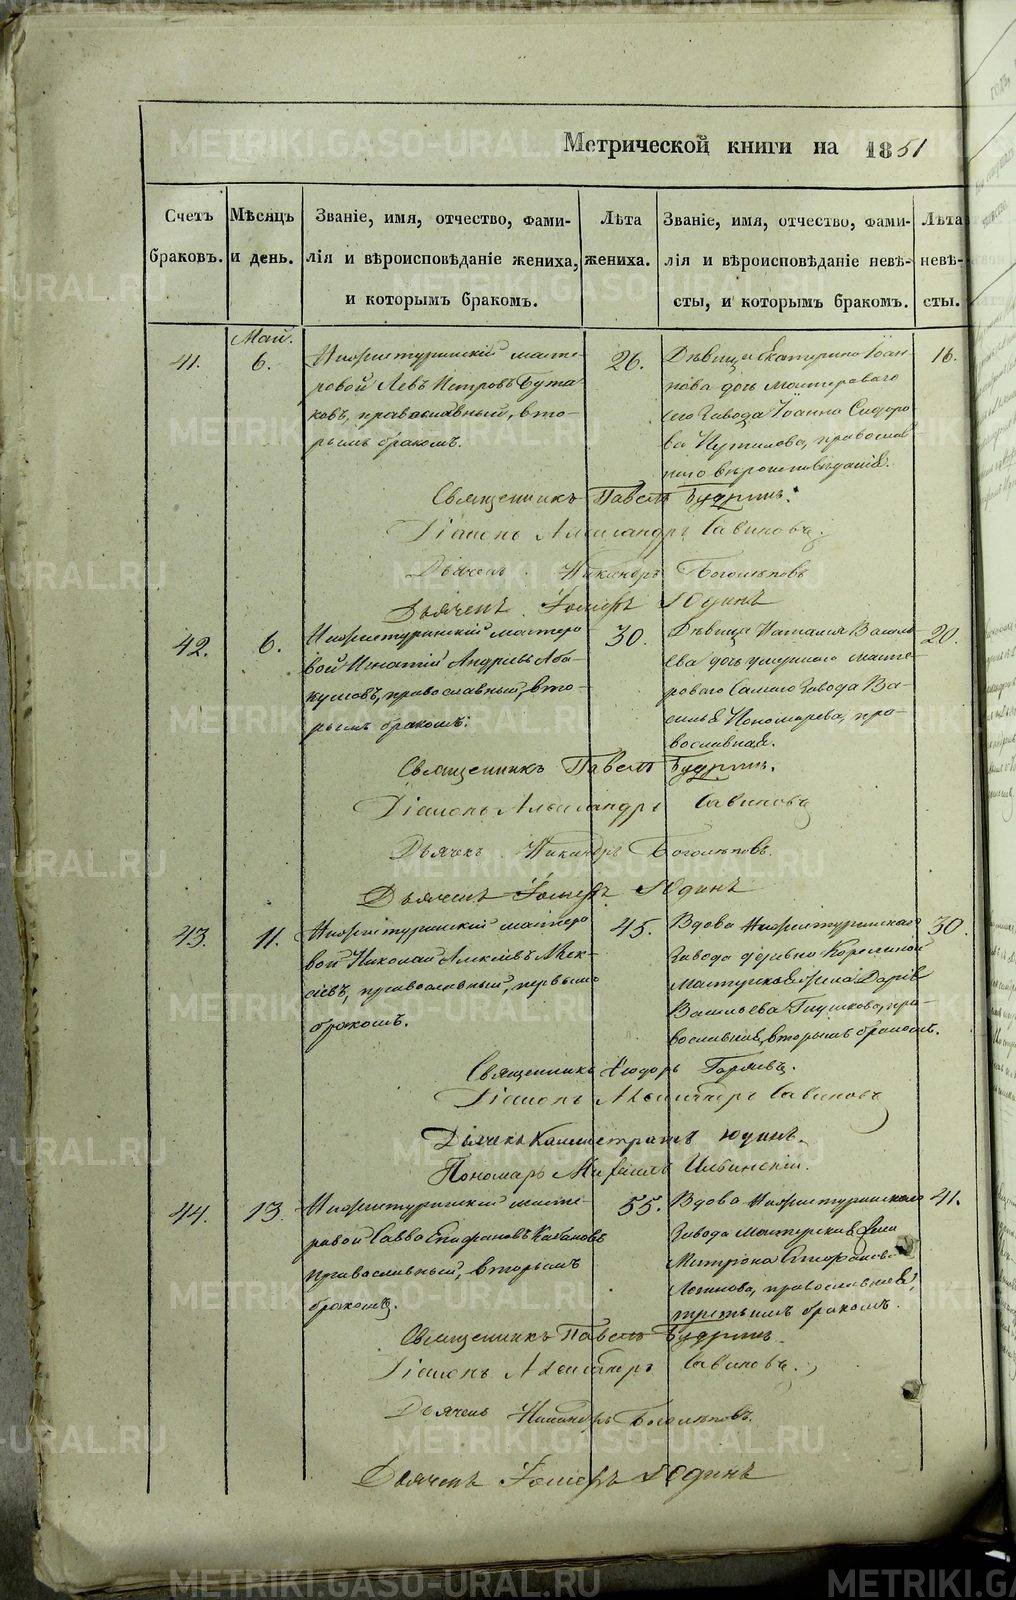 METRIKI.GASO-URAL.RU
Метрической книги на 1851
Счетъ браковъ.
Мѣсяцъ и день.
Званіе, имя, отчество, фами-
лія и вѣроисповѣданіе жениха,
и которымъ бракомъ.
Лѣта жениха.
Званіе, имя, отчество, фами-
лія и вѣроисповѣданіе невѣ-
сты, и которымъ бракомъ.
Лѣта невѣ-
сты.
Май.
41.
6.
Нижнетуринскій масте-
ровой Левъ Петровъ Бута-
ковъ, православный, вто-
рымъ бракомъ.
26.
Дѣвица Екатерина Іоан-
нова дочь мастероваго
сего завода Іоанна Сидоро-
ва Путилова, православ
наго вѣроисповѣданія.
16.
Священникъ Павелъ Будринъ.
Діаконъ Александръ Савиновъ.
Дьячекъ Никандръ Боголѣповъ
Дьячекъ Юдинъ
42.
6.
Нижнетуринскій мастеро
вой Игнатій Андреевъ Аба-
кумовъ, православный, вто-
рымъ бракомъ.
30.
Дѣвица Наталья Василь-
ева дочь умершаго масте-
роваго завода Ва-
силья Пономарева, пра-
вославная.
20.
Священникъ Павелъ Будринъ.
Діаконъ Александръ Савиновъ
Дьячекъ Никандръ Боголѣповъ.
Дьячекъ Юдинъ
43.
11.
Нижнетуринскій мастеро
вой Николай Алексѣевъ Алек-
сѣевъ, православный, первымъ
бракомъ.
45.
Вдова Нижнетуринскаго
завода деревни
мастерская жена Дарья
Васильева Глушкова, пра-
вославная, вторымъ бракомъ.
30.
Священникъ Ѳеодоръ Горяевъ.
Діаконъ Александръ Савиновъ
Дьячекъ Калистратъ Юдинъ.
Пономарь Михаилъ Ильинскій.
44.
13.
Нижнетуринскій масте-
ровой Савва Епифановъ Кабановъ
православный, вторымъ
бракомъ.
55.
Вдова Нижнетуринскаго
завода мастерская жена
Матрона
Логинова, православная,
третьимъ бракомъ.
41.
Священникъ Павелъ Будринъ.
Діаконъ Александръ Савиновъ.
Дьячекъ Никандръ Боголѣповъ.
Дьячекъ Юдинъ